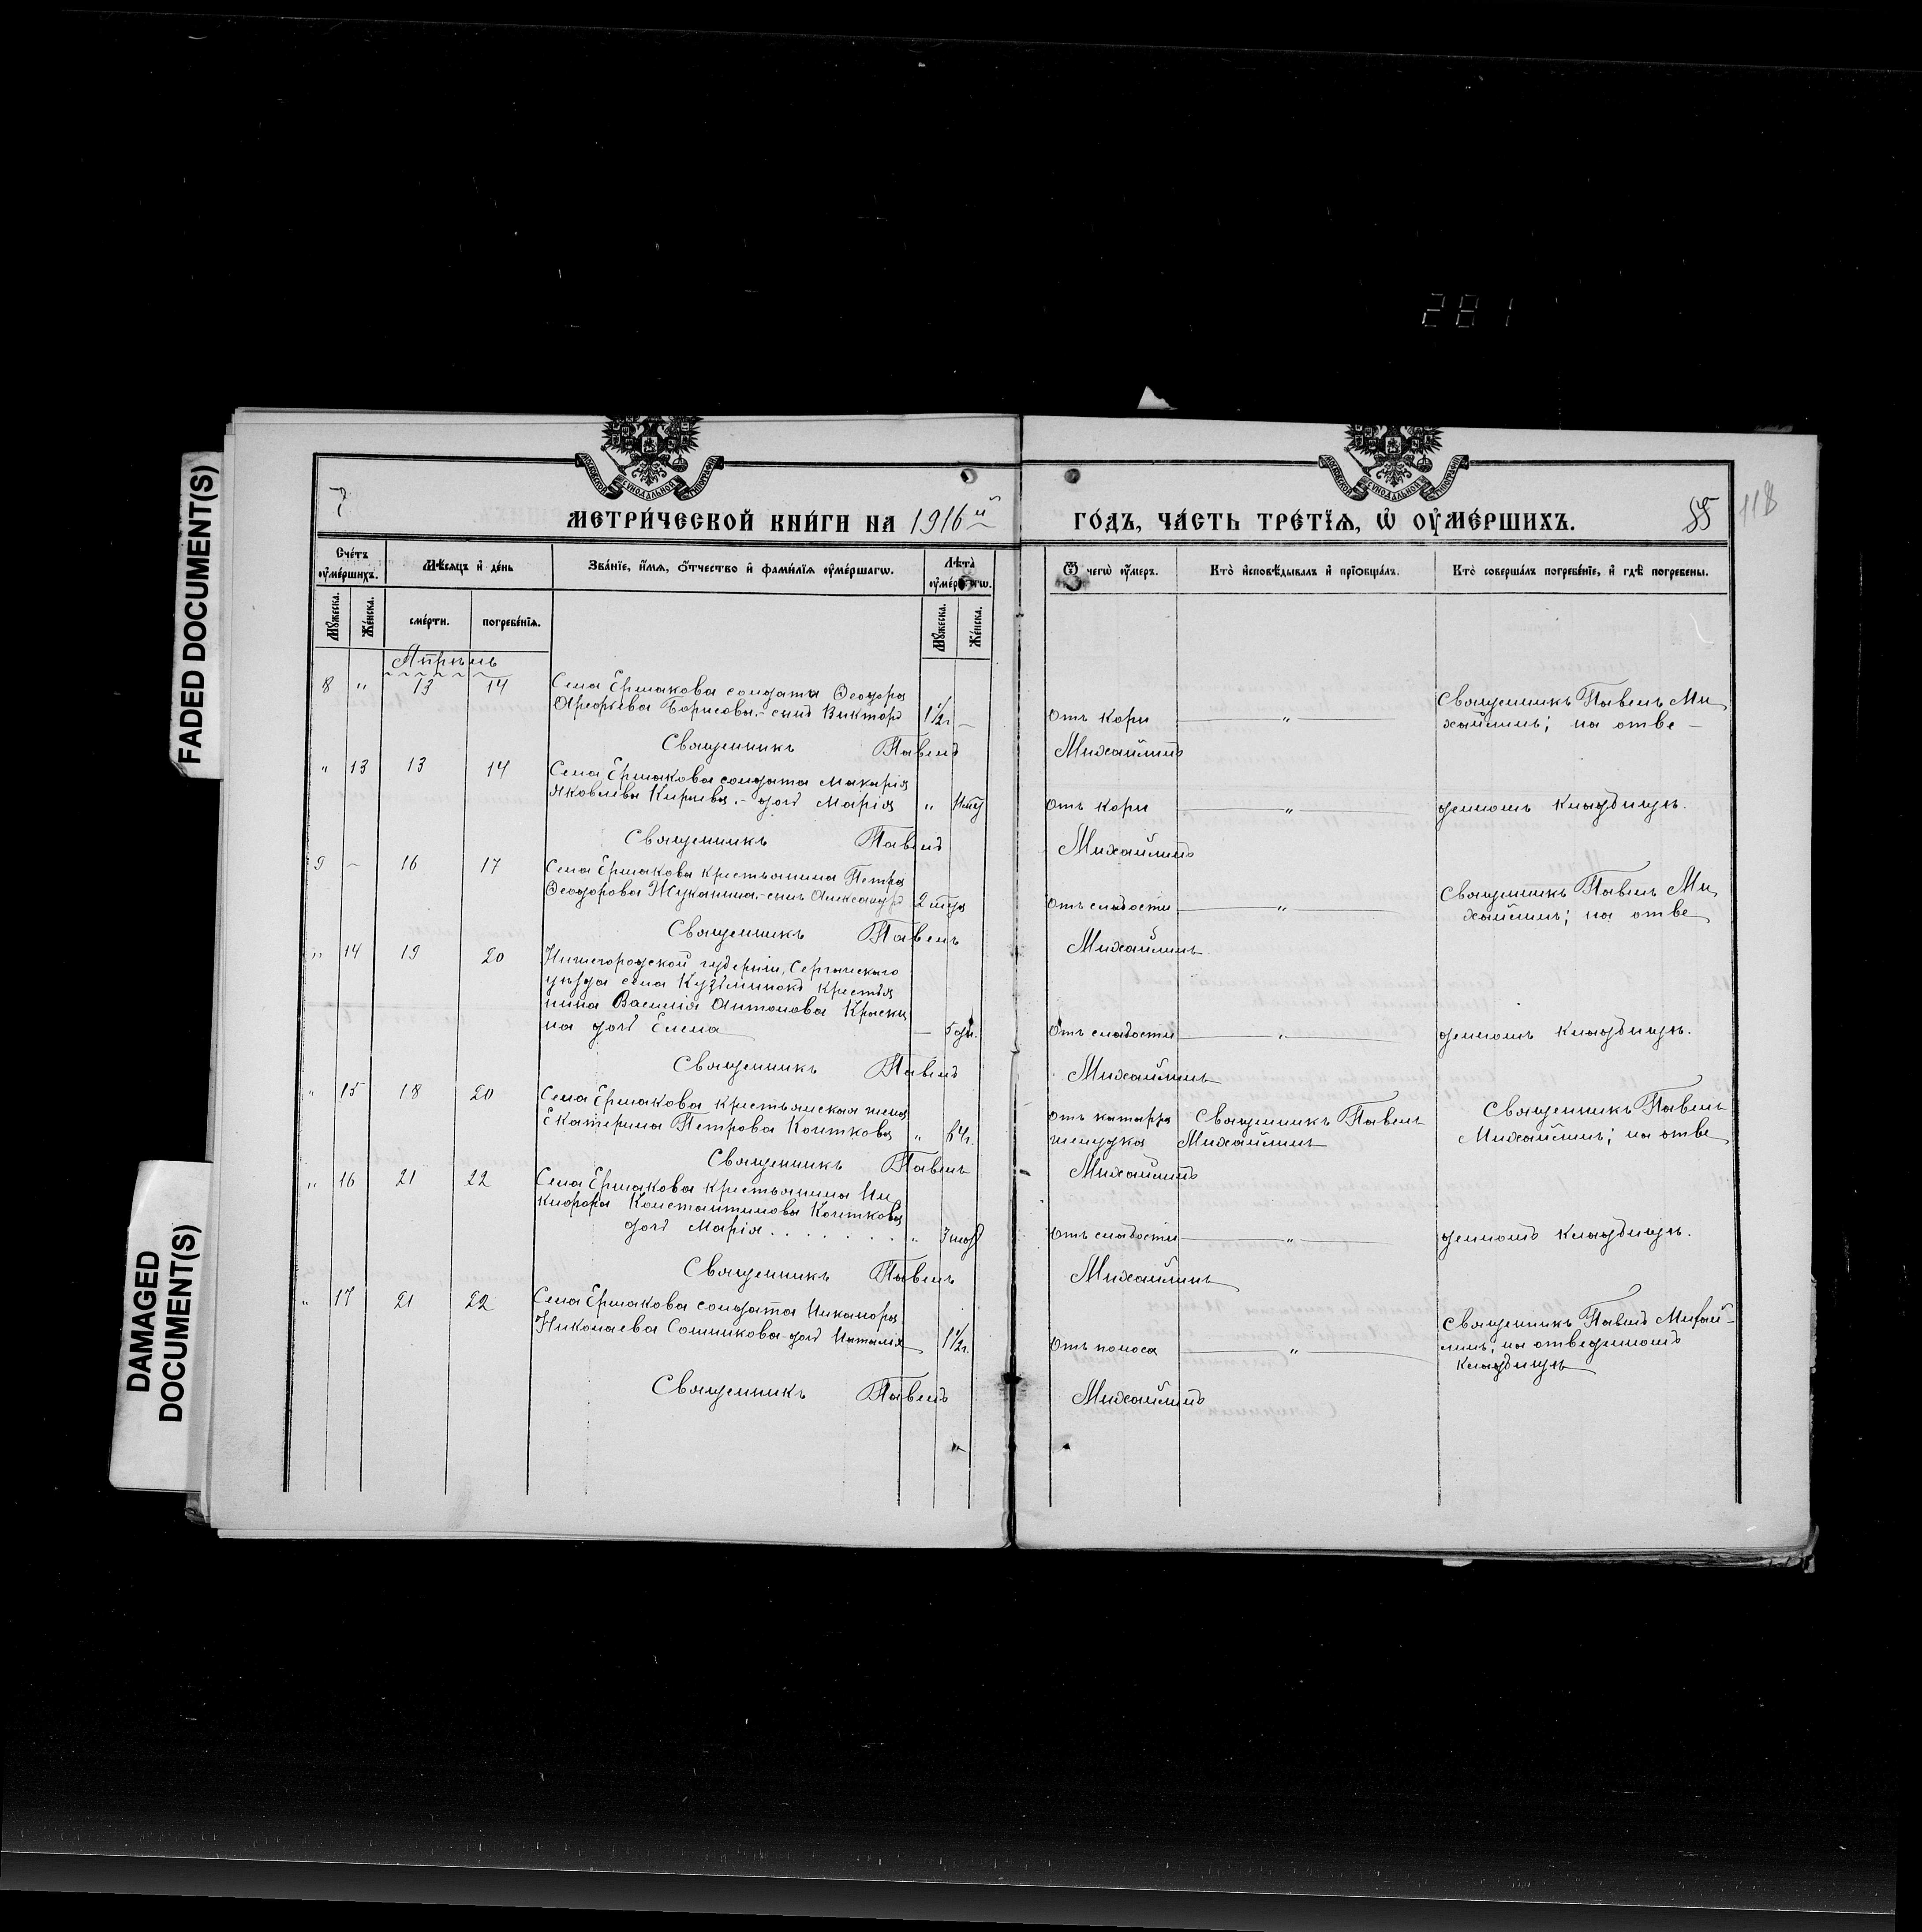 281
FADED DOCUMENT(S)
DAMAGED
DOCUMENT(S)
МЕТРИ́ЧЕСКОЙ КНИ́ГИ НА 1916й
ГО́ДЪ, ЧА́СТЬ ТРЕ́ТЇѦ, Ѡ҆ ОУ҆МЕ́РШИХЪ.
118
Сче́тъ оу҆ме́ршихъ.
Мѣ́сяцъ и҆ де́нь
Зва́нїе, и҆́мѧ, ѻ҆́тчество и҆ фами́лїѧ оу҆ме́ршагѡ.
Лѣ́та
Ѿ чегѡ̀ оу҆́меръ.
Кто̀ и҆сповѣ́дывалъ и҆ прїѻбща́лъ.
Кто̀ соверша́лъ погребе́нїе, и҆ гдѣ̀ погребены.
Мꙋ́жеска.
Же́нска.
сме́рти.
погребе́нїѧ.
Мꙋ́жеска.
Же́нска.
Апрель
8 " 13 14 Села Ермакова солдата Ѳеодора
Борисова.- сынъ Викторъ 1½г –
отъ кори "
Священникъ Павелъ Ми
хайлинъ; на отве–
Священникъ Павелъ Михайлинъ
" 13 13 14 Села Ермакова солдата Макарія
Яковлева .- дочь Марія "
отъ кори " денномъ кладбищѣ.
Священникъ Павелъ Михайлинъ
9 – 16 17 Села Ермакова крестьянина Петра
Ѳеодорова Жуканина.-сынъ Александръ
отъ слабости "
Священникъ Павелъ Ми
хайлинъ; на отве
Священникъ Павелъ Михайлинъ
" 14 19 20 Нижегородской губерніи, Сергачскаго
уѣзда села крестья
нина Василія Антонова
на дочь Елена — 5 дн.
отъ слабости " денномъ кладбищѣ.
Священникъ Павелъ Михайлинъ
" 15 18 20 Села Ермакова крестьянская жена
Екатерина Петрова Кочткова "
отъ катарра
желудка
Священникъ Павелъ
Михайлинъ
Священникъ Павелъ
Михайлинъ; на отве
Священникъ Павелъ Михайлинъ
" 16 21 22 Села Ермакова крестьянина Ни
кифора Константинова Кочткова
дочь Марія . . . . . . . "
отъ слабости " денномъ кладбищѣ.
Священникъ Павелъ Михайлинъ
" 17 21 22 Села Ермакова солдата Никанора
Николаева Сошникова-дочь Наталія 1½г.
отъ поноса "
Священникъ Павелъ Михай–
линъ; на отведенномъ
кладбищѣ
Священникъ Павелъ Михайлинъ